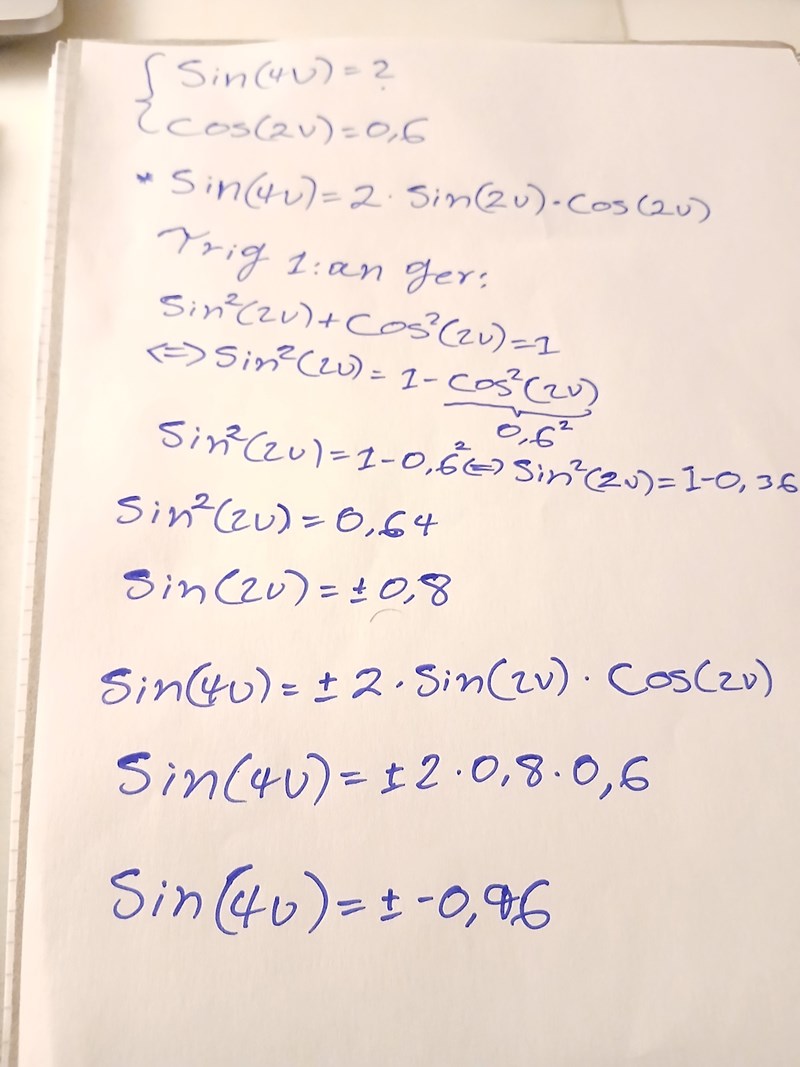 { Sin(4v)=?
Cos(2v)=0,6
* Sin(4v)=2·Sin(2v)·Cos(2v)
Trig 1:an ger:
Sin²(2v)+Cos²(2v)=1
<=> Sin²(2v)=1-Cos²(2v)
0,6²
Sin²(2v)=1-0,6² <=> Sin²(2v)=1-0,36
Sin²(2v)=0,64
Sin(2v)=±0,8
Sin(4v)=±2·Sin(2v)·Cos(2v)
Sin(4v)=±2·0,8·0,6
Sin(4v)=±-0,96